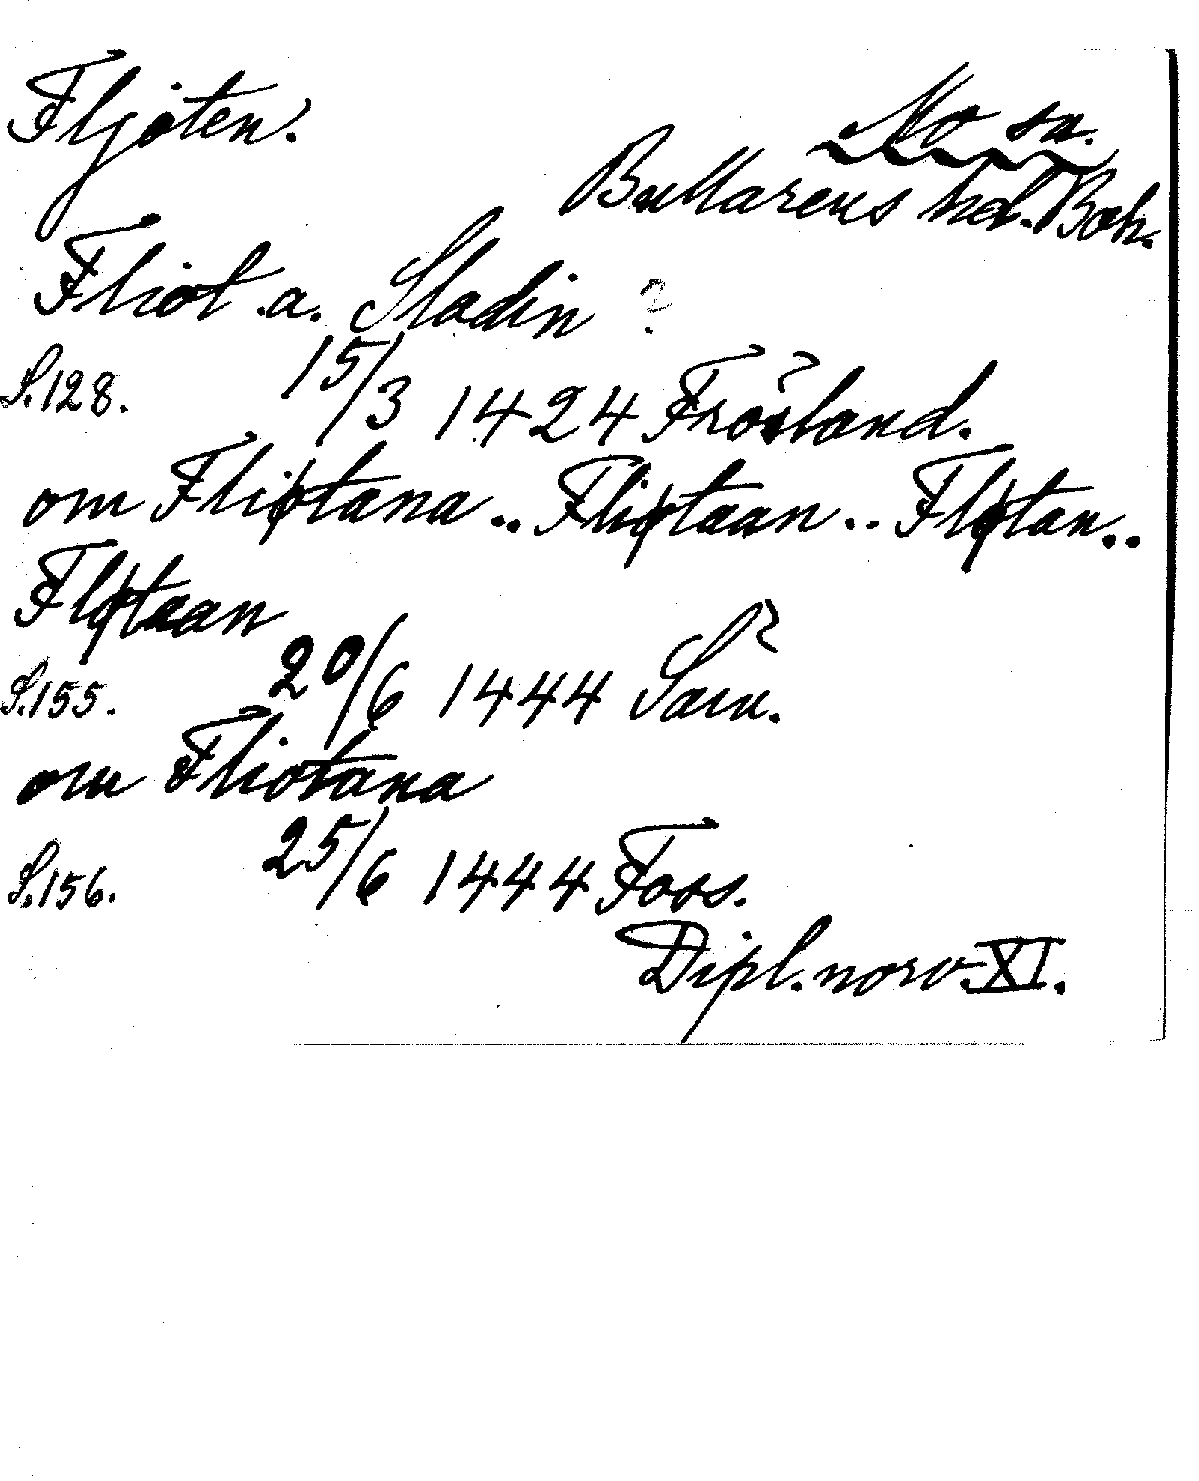 Fljøten.
Mo sn.
Bullarens hd. Boh.
Fliot .a. Sladin ?
S.128. 15/3 1424 Frösland.
om Fliøtana .. Fliøtaan .. Fløtan ..
Fløtaan
S.155. 20/6 1444 Sæm.
om Fliotana
S.156. 25/6 1444 Foss.
Dipl. norv. XI.